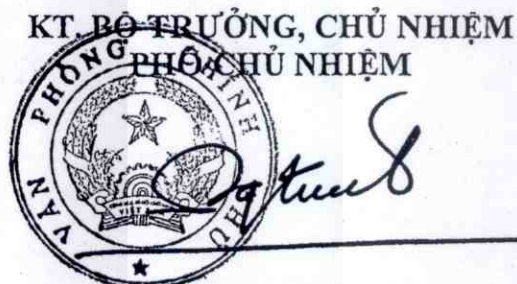 KT. BỘ TRƯỞNG, CHỦ NHIỆM
PHÓ CHỦ NHIỆM
VĂN PHÒNG CHÍNH PHỦ
VIỆT